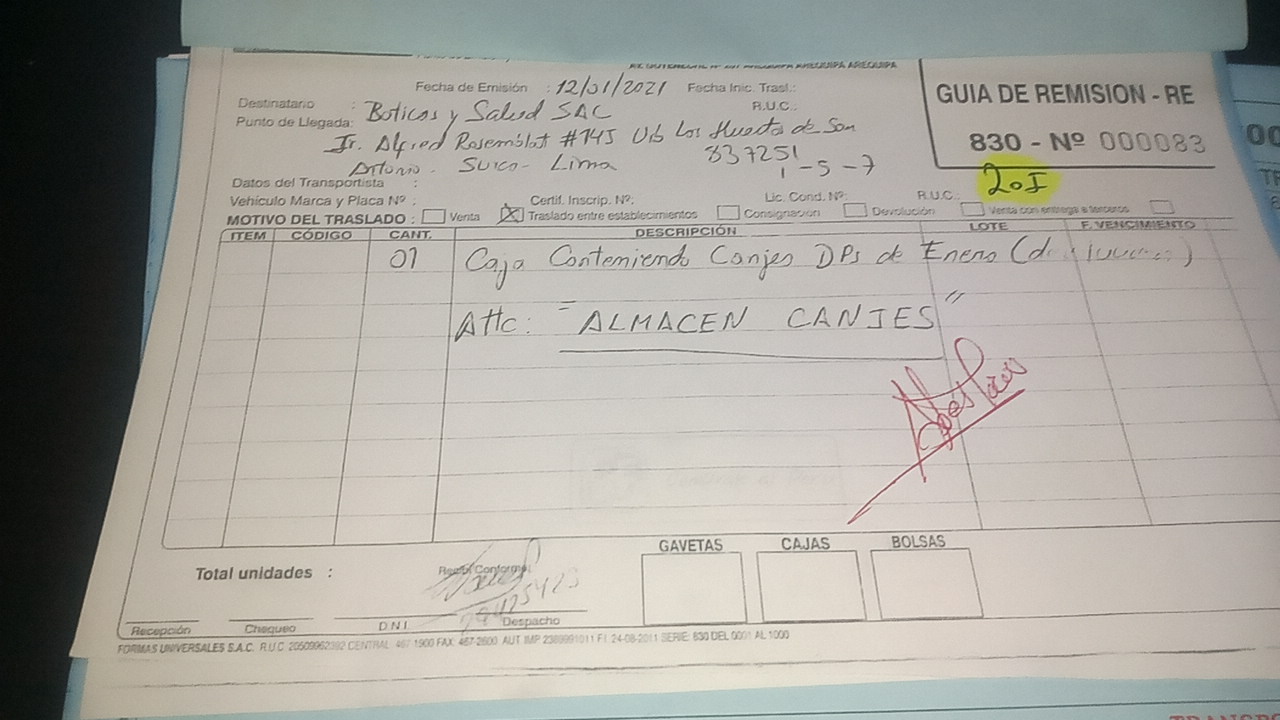 AREQUIPA AREQUIPA
Fecha de Emisión : 12/01/2021 Fecha Inic. Trasl.:
Destinatario : Boticas y Salud SAC R.U.C.:
Punto de Llegada: Jr. Alfred Rosemblat #145 Urb Los Huertos de San
Antonio - Surco - Lima 837251
1-5-7
GUIA DE REMISION - RE
830 - Nº 000083
20I
Datos del Transportista :
Vehículo Marca y Placa Nº : Certif. Inscrip. Nº: Lic. Cond. Nº: R.U.C.:
MOTIVO DEL TRASLADO : Venta X Traslado entre establecimientos Consignación Devolución Venta con entrega a terceros
ITEM CÓDIGO CANT. DESCRIPCIÓN LOTE F. VENCIMIENTO
01 Caja Conteniendo Canjes DPs de Enero
Attc: "ALMACEN CANJES"
GAVETAS CAJAS BOLSAS
Total unidades : Recibí Conforme
Recepción Chequeo D.N.I. Despacho
FORMAS UNIVERSALES S.A.C. R.U.C. CENTRAL: 467-1900 FAX: 467-2600 AUT. IMP. F.I. 24-08-2011 SERIE: 830 DEL 0001 AL 1000